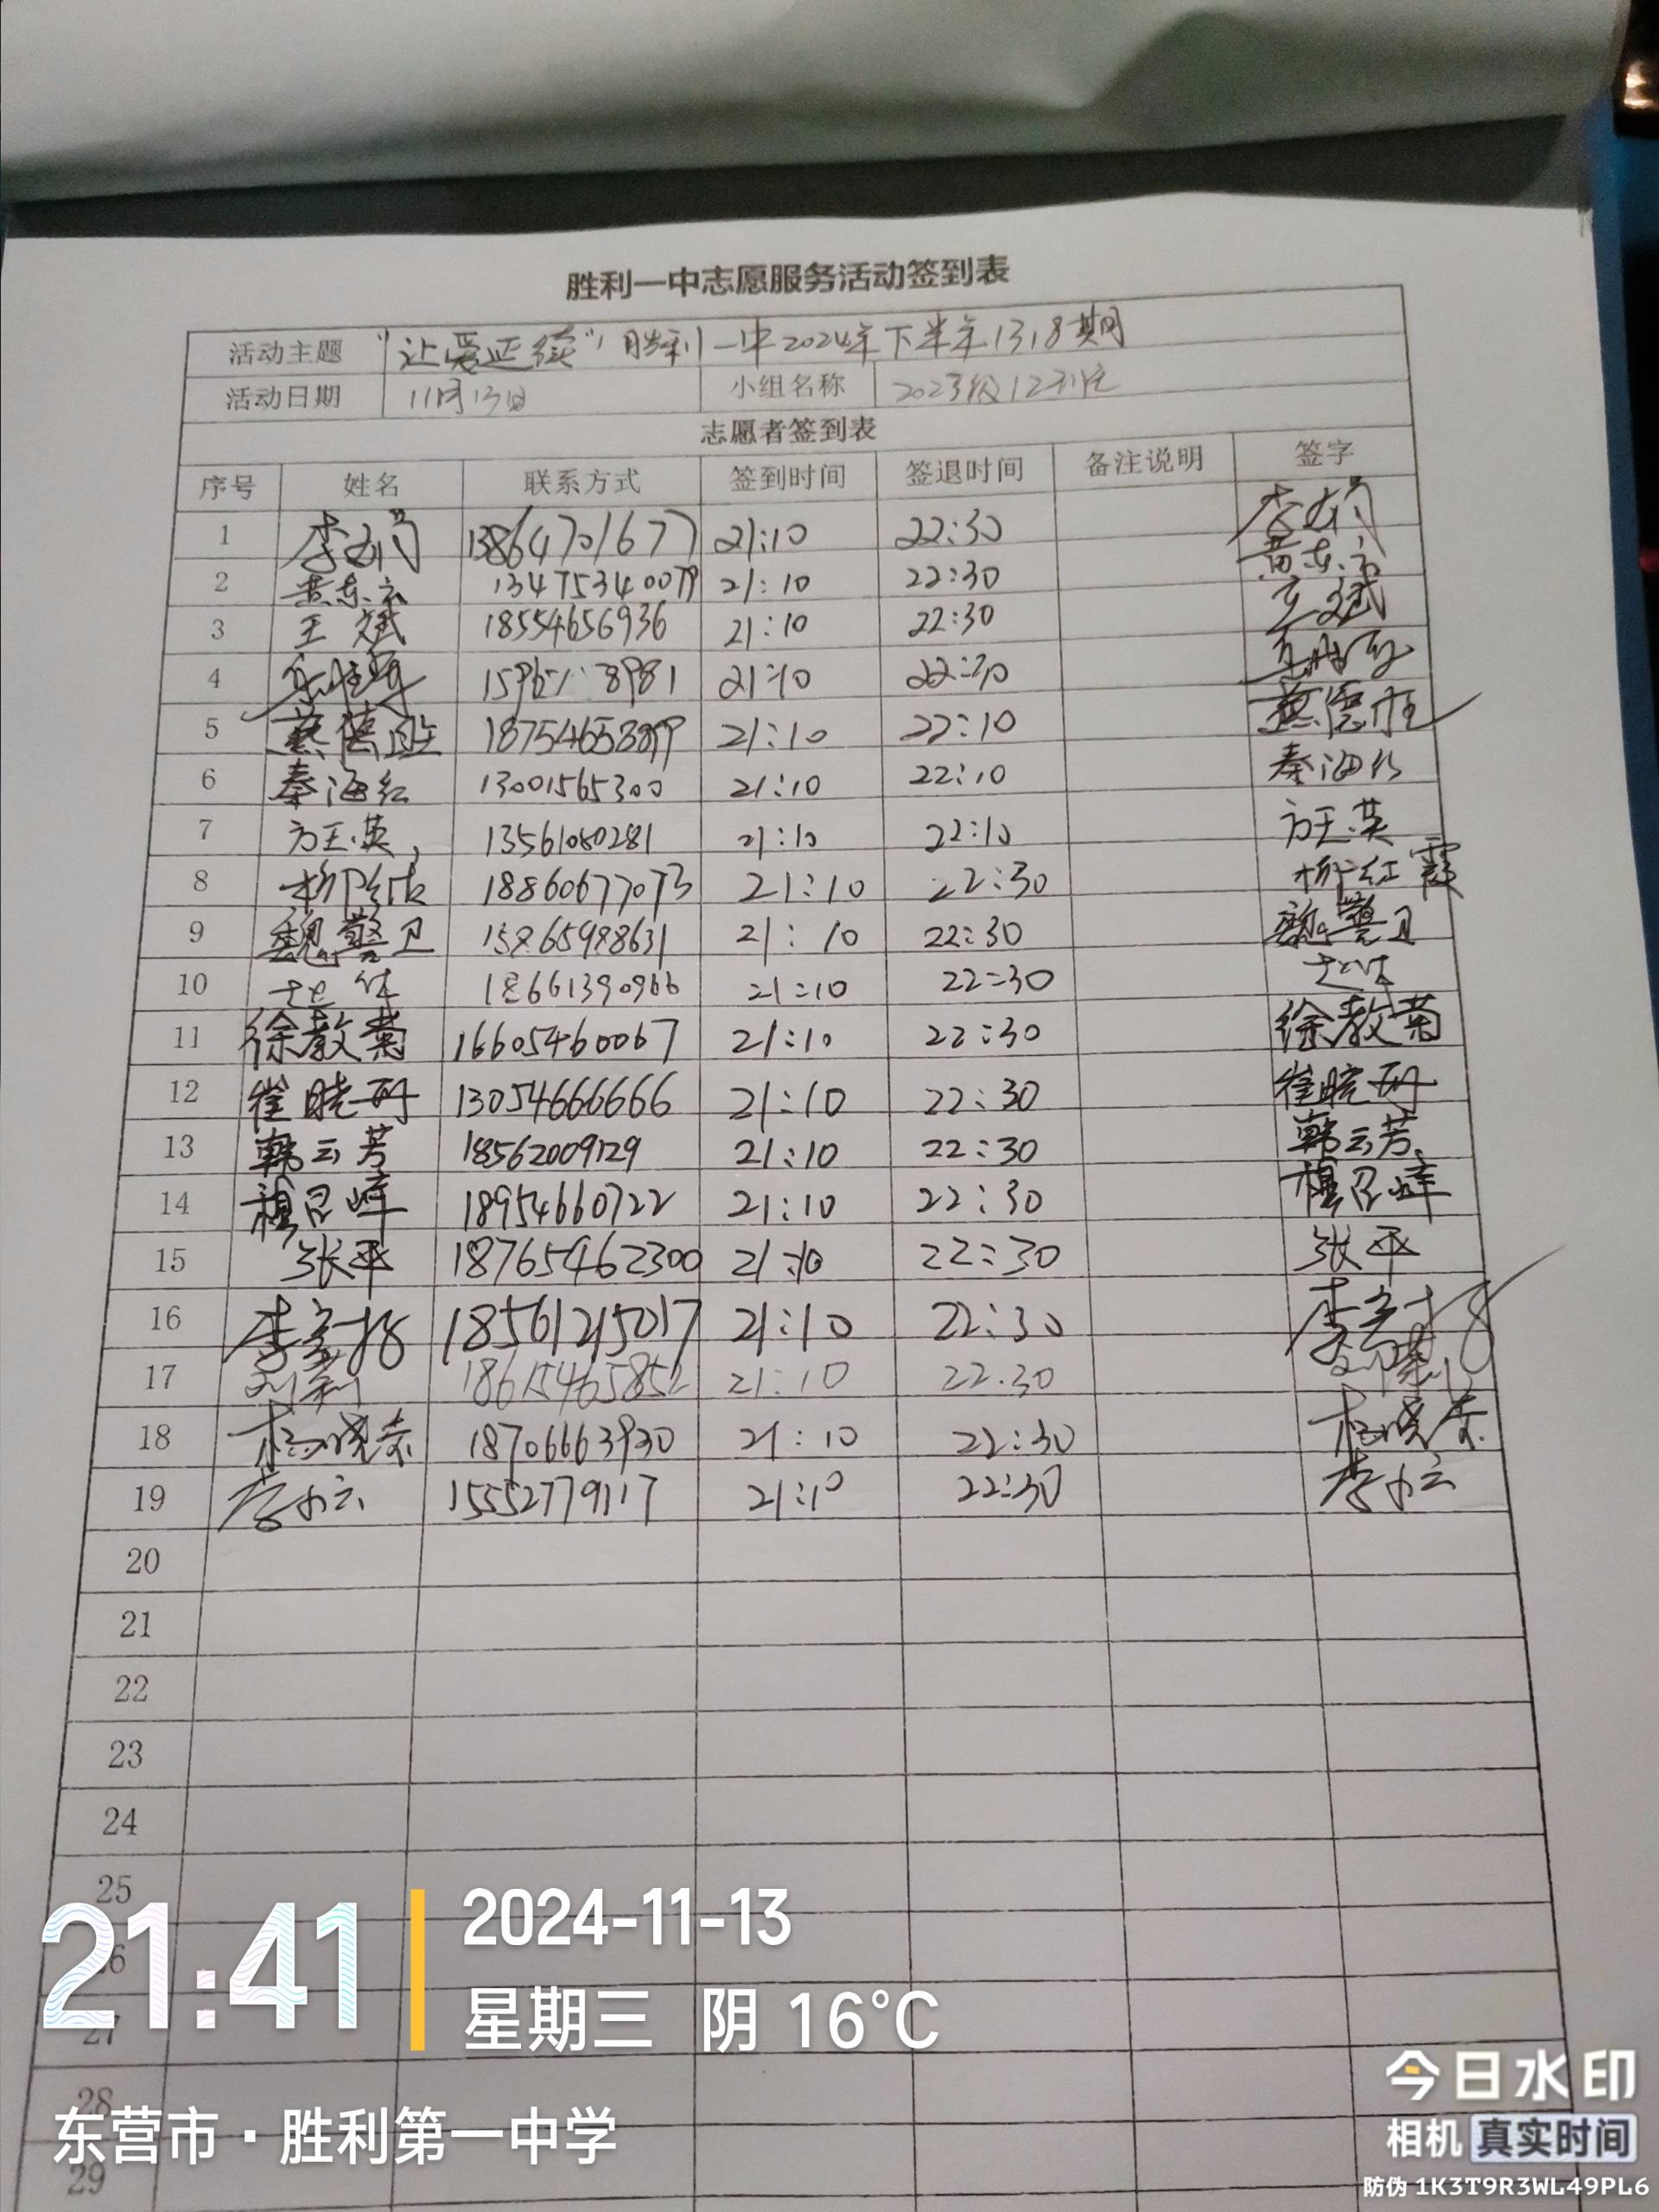 胜利一中志愿服务活动签到表
活动主题 "让爱延续"胜利一中2024年下半年1318期
活动日期 11月13日 小组名称 2023级12班
志愿者签到表
序号 姓名 联系方式 签到时间 签退时间 备注说明 签字
1 李 13864701677 21:10 22:30 李
2 黄东云 13475340079 21:10 22:30 黄东云
3 王斌 18554656936 21:10 22:30 王斌
4 8981 21:10 22:30
5 燕德胜 21:10 22:10 燕德胜
6 秦海红 13001565300 21:10 22:10 秦海红
7 方玉英 13561080281 21:10 22:10 方玉英
8 柳红霞 18860677073 21:10 22:30 柳红霞
9 魏警卫 15865988631 21:10 22:30 魏警卫
10 赵 18661390966 21:10 22:30 赵
11 徐教菊 16605460067 21:10 22:30 徐教菊
12 崔晓丹 13054666666 21:10 22:30 崔晓丹
13 韩云芳 18562009129 21:10 22:30 韩云芳
14 穆召峰 18954660722 21:10 22:30 穆召峰
15 张平 18765462300 21:10 22:30 张平
16 李 18561215017 21:10 22:30 李
17 刘 18615465852 21:10 22:30 刘
18 杨晓东 18706663930 21:10 22:30 杨晓东
19 李小云 15552779117 21:10 22:30 李小云
20
21
22
23
24
25
26
27
28
29
21:41
2024-11-13
星期三 阴 16°C
东营市·胜利第一中学
今日水印
相机 真实时间
防伪 1K3T9R3WL49PL6